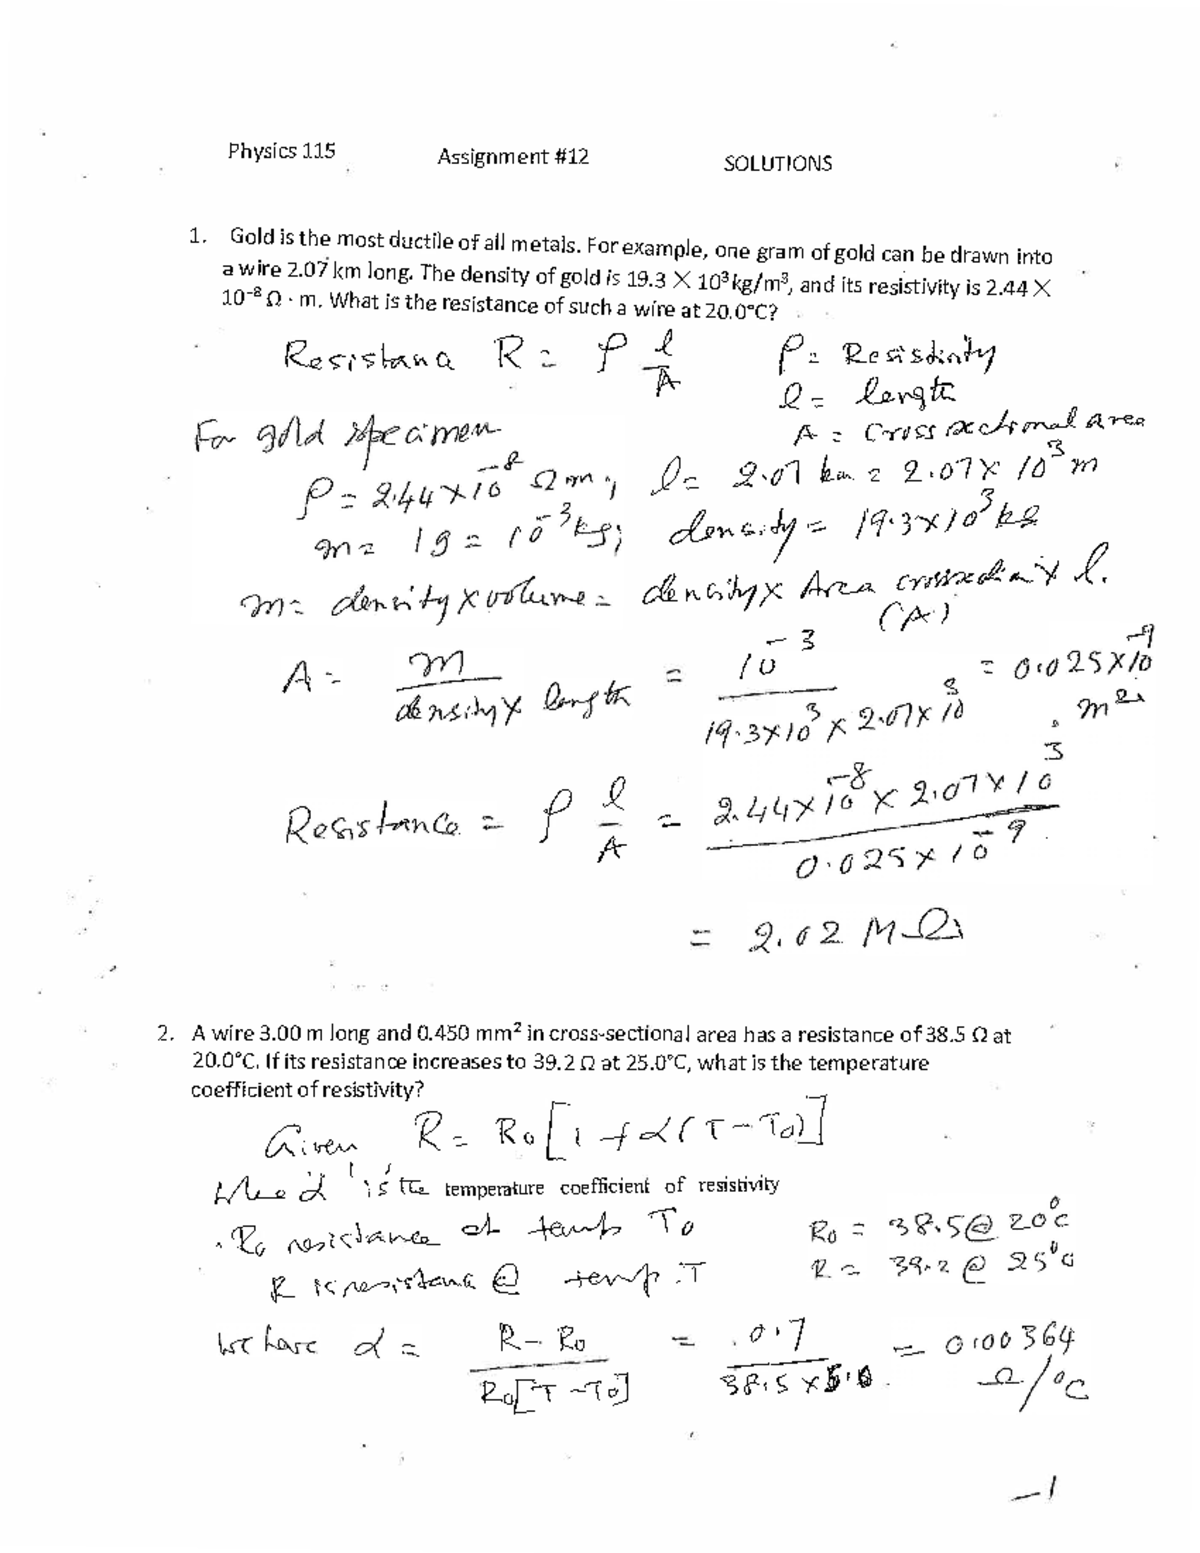 Physics 115 Assignment #12 SOLUTIONS
1. Gold is the most ductile of all metals. For example, one gram of gold can be drawn into
a wire 2.07 km long. The density of gold is 19.3 X 10³kg/m³, and its resistivity is 2.44 X
10⁻⁸ Ω · m. What is the resistance of such a wire at 20.0°C?
Resistana R = ρ l/A ρ = Resistivity
l = length
For gold specimen A = Cross sectional area
ρ = 2.44×10⁻⁸ Ωm; l = 2.07 km = 2.07× 10³ m
m = 1g = 10⁻³kg; density = 19.3×10³kg
m = density × volume = density × Area crossection × l.
(A)
A = m/density × length = 10⁻³/19.3×10³ × 2.07× 10³ = 0.025×10⁻⁹ m²
Resistance = ρ l/A = 2.44×10⁻⁸ × 2.07×10³/0.025×10⁻⁹
= 2.02 MΩ
2. A wire 3.00 m long and 0.450 mm² in cross-sectional area has a resistance of 38.5 Ω at
20.0°C. If its resistance increases to 39.2 Ω at 25.0°C, what is the temperature
coefficient of resistivity?
Given R = R₀[1 + α(T-T₀)]
α 'is the temperature coefficient of resistivity
R₀ resistance at temp T₀ R₀ = 38.5@ 20°C
R is resistana @ temp T R = 39.2 @ 25°C
We have α = R - R₀/R₀[T - T₀] = 0.7/38.5 × 5.0 = 0.00364
Ω/°C
-1